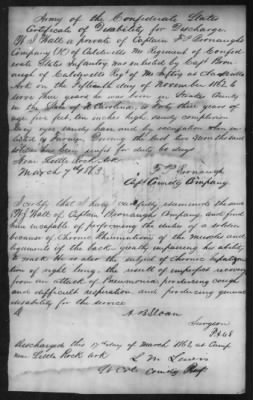 Army of the Confederate States
Certificate of Disability for Discharge
W J Wall a private of Captain F P Bronaughs
Company (K) of Caldwells Mo Regiment of Confed
erate States Infantry was enlisted by Capt Bron
augh of Caldwells Reg't of Mo Infty at
Ark on the Fifteenth day of November 1862 to
serve three years he was born in County
in the State of N Carolina, is forty three years of
age five feet, ten inches high sandy complexion
Grey eyes sandy hair and by occupation when en
listed a farmer. During the last two months said
soldier has been unfit for duty days
Near Little Rock Ark
March 7th 1863 F P Bronaugh
Capt Comdg Company
I certify that I have carefully examined the said
W J Wall of Captain Bronaughs Company, and find
him incapable of performing the duties of a soldier
because of Chronic Rheumatism of the Muscles and
ligaments of the back greatly impairing his ability
to walk He is also the subject of Chronic hepatiza
tion of right lung, the result of imperfect recovery
from an attack of Pneumonia producing cough
and difficult respiration and producing general
disability for the service
A B Sloan
Surgeon
Discharged this 17th day of March 1863, at Camp
near Little Rock Ark L M Lewis
Lt Col Comdg Regt